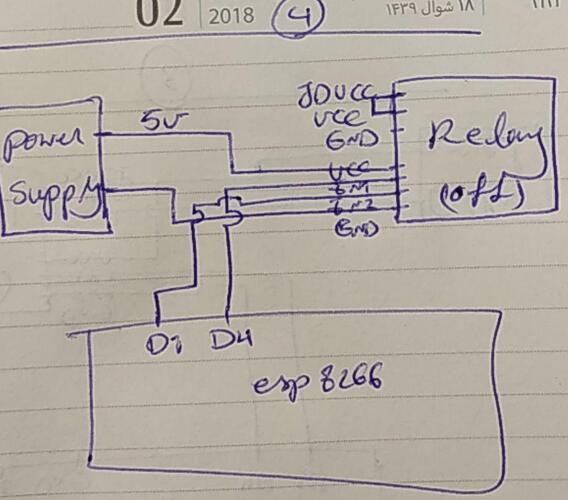 02 2018 4 ۱۸ شوال ۱۴۳۹
JDVCC
VCC
GND
5v
Power
Supply
Relay
(off)
VCC
IN1
IN2
GND
D4
esp 8266